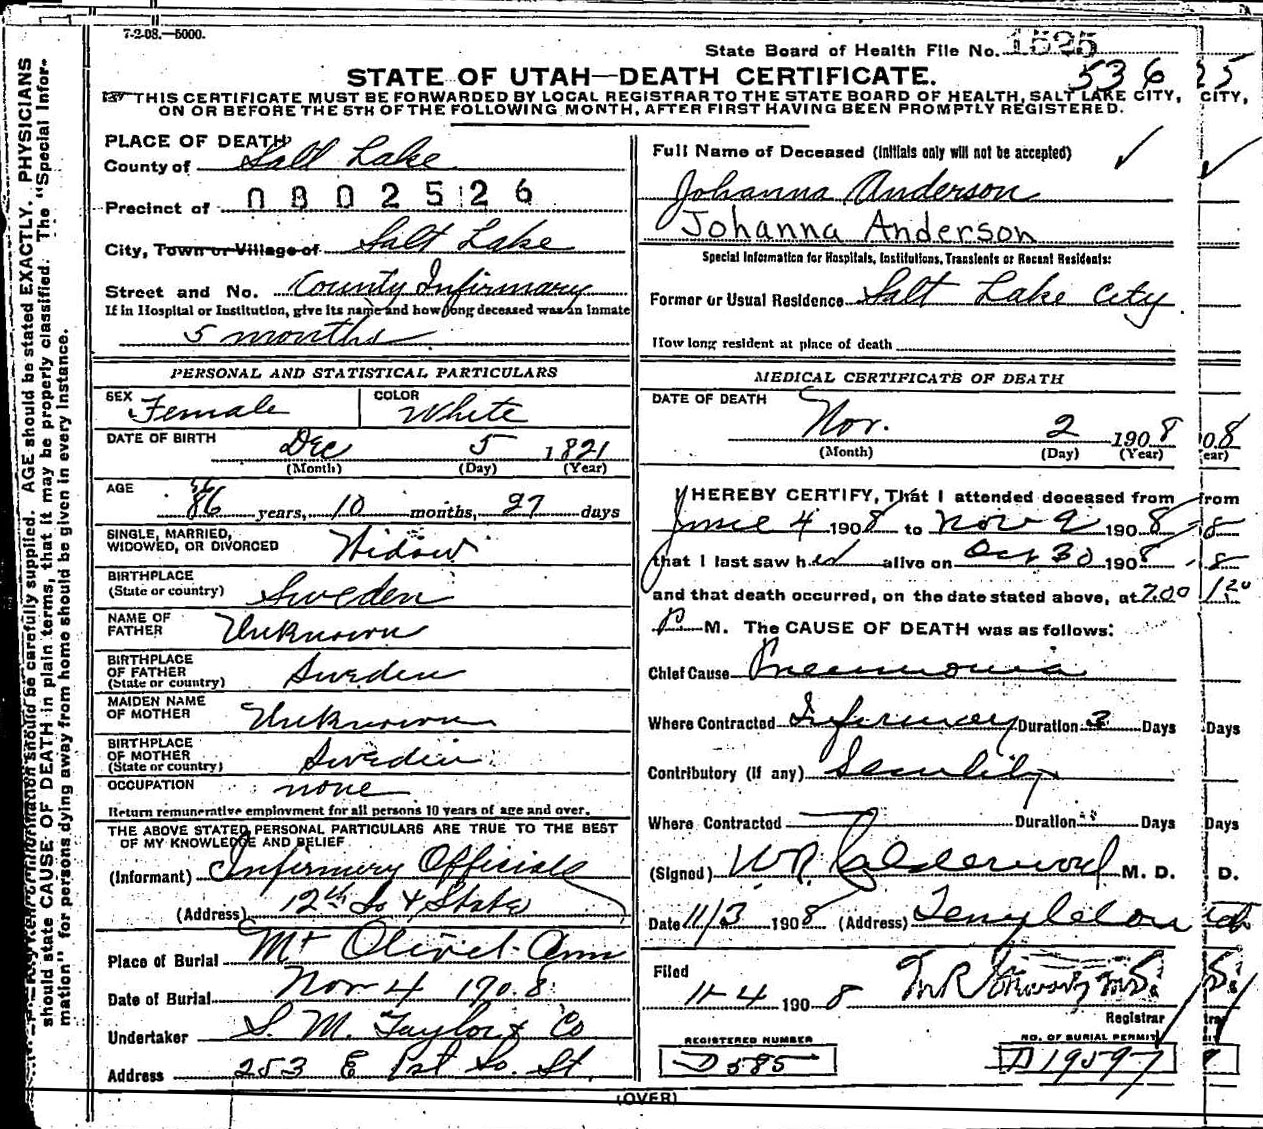 7-2-08.—5000.
State Board of Health File No. 1525
536
25
STATE OF UTAH—DEATH CERTIFICATE.
THIS CERTIFICATE MUST BE FORWARDED BY LOCAL REGISTRAR TO THE STATE BOARD OF HEALTH, SALT LAKE CITY, CITY,
ON OR BEFORE THE 5TH OF THE FOLLOWING MONTH, AFTER FIRST HAVING BEEN PROMPTLY REGISTERED.
PLACE OF DEATH
County of Salt Lake
Precinct of 0802526
City, Town or Village of Salt Lake
Street and No. County Infirmary
If in Hospital or Institution, give its name and how long deceased was an inmate
5 months
Full Name of Deceased (Initials only will not be accepted)
Johanna Anderson
Johanna Anderson
Special Information for Hospitals, Institutions, Transients or Recent Residents:
Former or Usual Residence Salt Lake City
How long resident at place of death
PERSONAL AND STATISTICAL PARTICULARS
SEX Female
COLOR White
DATE OF BIRTH Dec 5 1821
(Month) (Day) (Year)
AGE 86 years, 10 months, 27 days
86
SINGLE, MARRIED,
WIDOWED, OR DIVORCED Widow
BIRTHPLACE
(State or country) Sweden
NAME OF
FATHER Unknown
BIRTHPLACE
OF FATHER
(State or country) Sweden
MAIDEN NAME
OF MOTHER Unknown
BIRTHPLACE
OF MOTHER
(State or country) Sweden
OCCUPATION none
Return remunerative employment for all persons 10 years of age and over.
THE ABOVE STATED PERSONAL PARTICULARS ARE TRUE TO THE BEST
OF MY KNOWLEDGE AND BELIEF
(Informant) Infirmary Officials
(Address) 12th So & State
Place of Burial Mt Olivet
Date of Burial Nov 4 1908
Undertaker S. M. Taylor & Co
Address 253 E 1st So. St.
MEDICAL CERTIFICATE OF DEATH
DATE OF DEATH
Nov. 2 1908 08
(Month) (Day) (Year) ear)
I HEREBY CERTIFY, That I attended deceased from from
June 4 1908 to Nov 2 1908 8
that I last saw her alive on Oct 30 1908 8
and that death occurred, on the date stated above, at 7.00
P M. The CAUSE OF DEATH was as follows:
Chief Cause Pneumonia
Where Contracted Infirmary Duration 3 Days Days
Contributory (if any) Senility
Where Contracted Duration Days Days
(Signed) W. R. Calderwood M. D. D.
Date 11/3 1908 (Address) Templeton
Filed
11-4 1908
Registrar trar
REGISTERED NUMBER
D 585
NO. OF BURIAL PERMIT
D 19597
(OVER)
should state CAUSE OF DEATH in plain terms, that it may be properly classified. The "Special Infor-
mation" for persons dying away from home should be given in every instance.
should be carefully supplied. AGE should be stated EXACTLY. PHYSICIANS